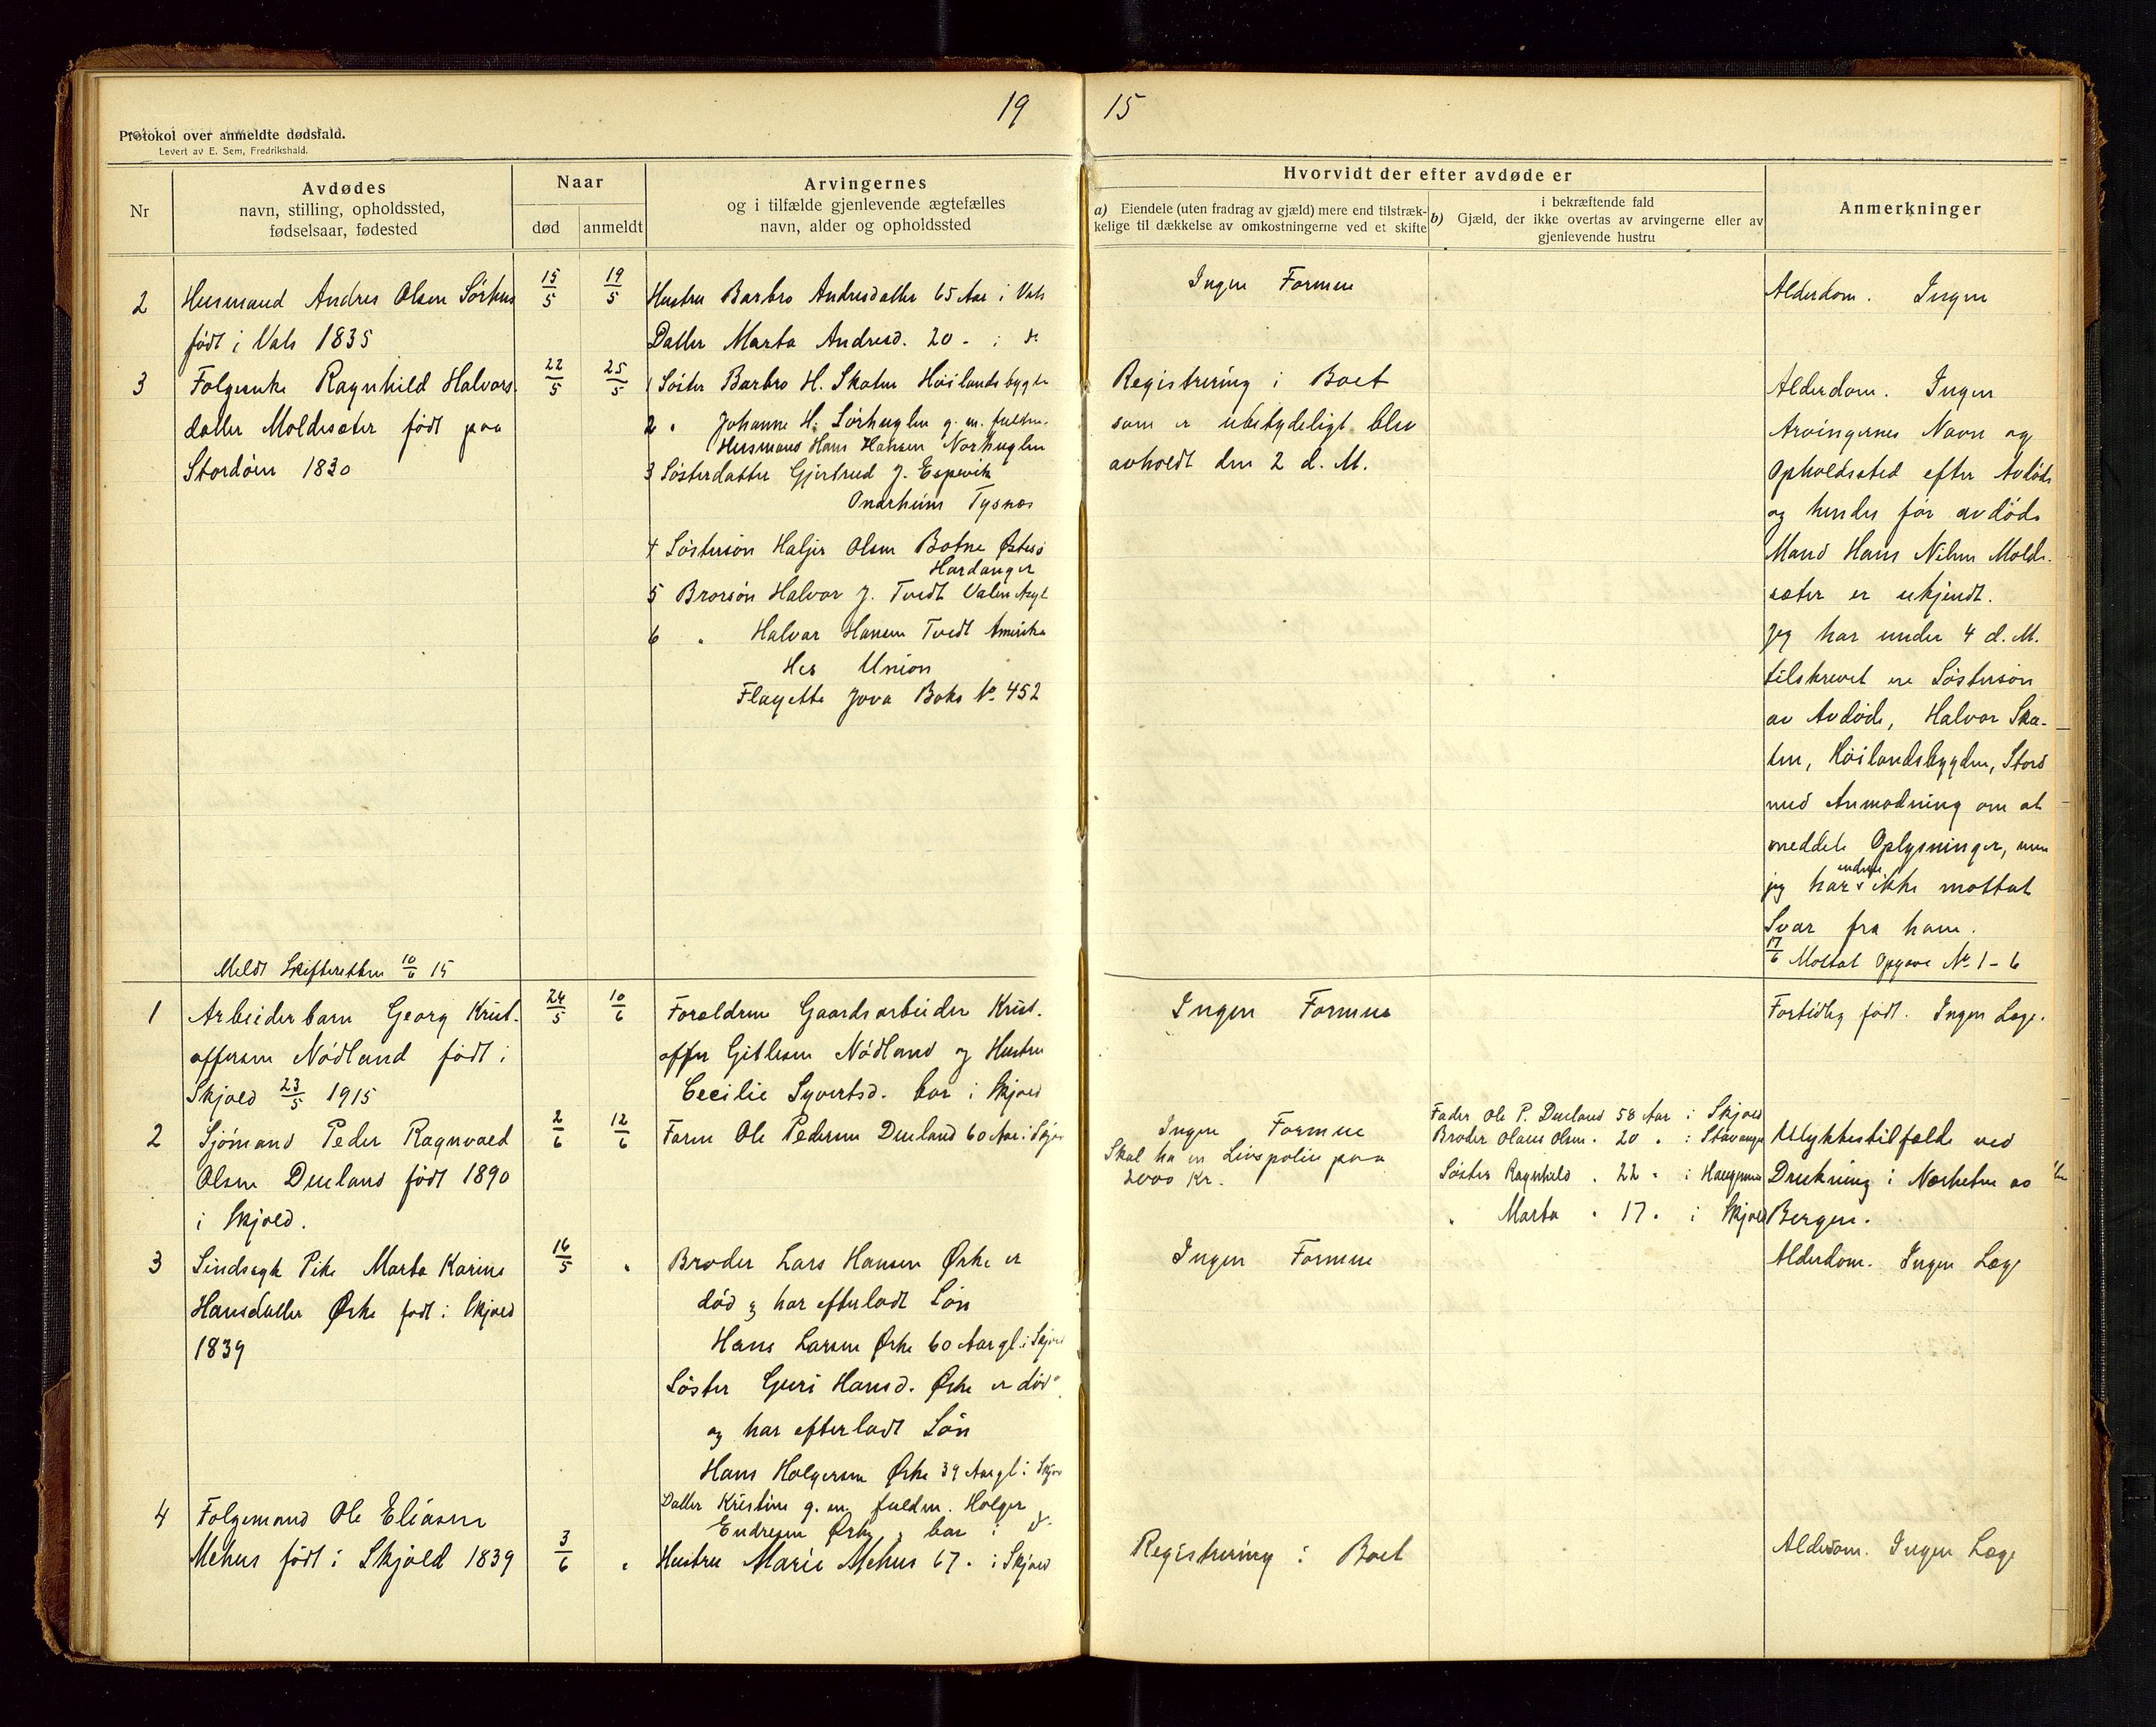 19 15
Protokol over anmeldte dødsfald.
Levert av E. Sem, Fredrikshald.
Nr
Avdødes
navn, stilling, opholdssted,
fødselsaar, fødested
Naar
død
anmeldt
Arvingernes
og i tilfælde gjenlevende ægtefælles
navn, alder og opholdssted
Hvorvidt der efter avdøde er
a) Eiendele (uten fradrag av gjæld) mere end tilstræk-
kelige til dækkelse av omkostningerne ved et skifte
i bekræftende fald
b) Gjæld, der ikke overtas av arvingerne eller av
gjenlevende hustru
Anmerkninger
2
Husmand Andres Olsen Sörhus
født i Vats 1835
15/5
19/5
Hustru Barbro Andresdatter 65 Aar i Vats
Datter Marta Andresd. 20 - i do
Ingen Formue
Alderdom. Ingen
3
Folgeenke Ragnhild Halvors-
datter Moldesæter født paa
Stordöen 1830
22/5
25/5
1 Söster Barbro H. Skaten Höilandsbygden
2 " Johanne H. Sörhuglen g. m. fuldm.
Husmand Hans Hansen Norhuglen
3 Sösterdatter Gjertrud J. Espevik
Onarheim Tysnæs
4 Söstersön Haljer Olsen Botne Østesö
Hardanger
5 Brorsön Halvor J. Tvedt Valen Asyl
6 " Halvar Hansen Tvedt Amerika
Hes Union
Flayette Jova Boks No 452
Registrering i Boet
som er ubetydeligt blev
avholdt den 2 d. M.
Alderdom. Ingen
Arvingernes Navn og
Opholdssted efter Avdöde
og hendes för avdöde
Mand Hans Nilsen Molde-
sæter er ukjendt.
Jeg har under 4 d. M.
tilskrevet en Söstersön
av Avdöde, Halvor Ska-
ten, Höilandsbygden, Stord
med Anmodning om at
meddele Oplysninger, men
jeg har endnu ikke mottat
Svar fra ham.
17/6 Mottat Opgave No 1-6
Meldt Skifteretten 10/6 15
1
Arbeiderbarn Georg Krist-
offersen Nödland födt i
Skjold 23/5 1915
24/5
10/6
Forældrene Gaardsarbeider Krist-
offer Gitlesen Nödland og Hustru
Cecilie Syvertsd. bor i Skjold
Ingen Formue
Fortidlig födt. Ingen Læge.
2
Sjömand Peder Ragnvald
Olsen Dueland födt 1890
i Skjold.
2/6
12/6
Faren Ole Pedersen Dueland 60 Aar i Skjold
Ingen Formue
Skal ha en Livspolise paa
2000 Kr.
Fader Ole P. Dueland 58 Aar i Skjold
Broder Olaus Olsen " 20 " i Stavanger
Söster Ragnhild " 22 " i Haugesund
" Marta " 17 " i Skjold
Ulykkestilfælde ved
Drukning i Nærheten av
Bergen.
3
Sindssyk Pike Marta Karine
Hansdatter Ørke födt i Skjold
1839
16/5
"
Broder Lars Hansen Ørke er
död og har efterladt Sön
Hans Larsen Ørke 60 Aar gl. i Skjold
Söster Guri Hansd. Ørke er död
og har efterladt Sön
Hans Holgersen Ørke 39 Aar gl. i Skjold
Datter Kristine g. m. fuldm. Holger
Endresen Ørke, bor i do
Ingen Formue
Alderdom. Ingen Læge
4
Folgemand Ole Eliasen
Mehus födt i Skjold 1839
3/6
"
Hustru Marie Mehus 67 " i Skjold
Registrering i Boet
Alderdom. Ingen Læge